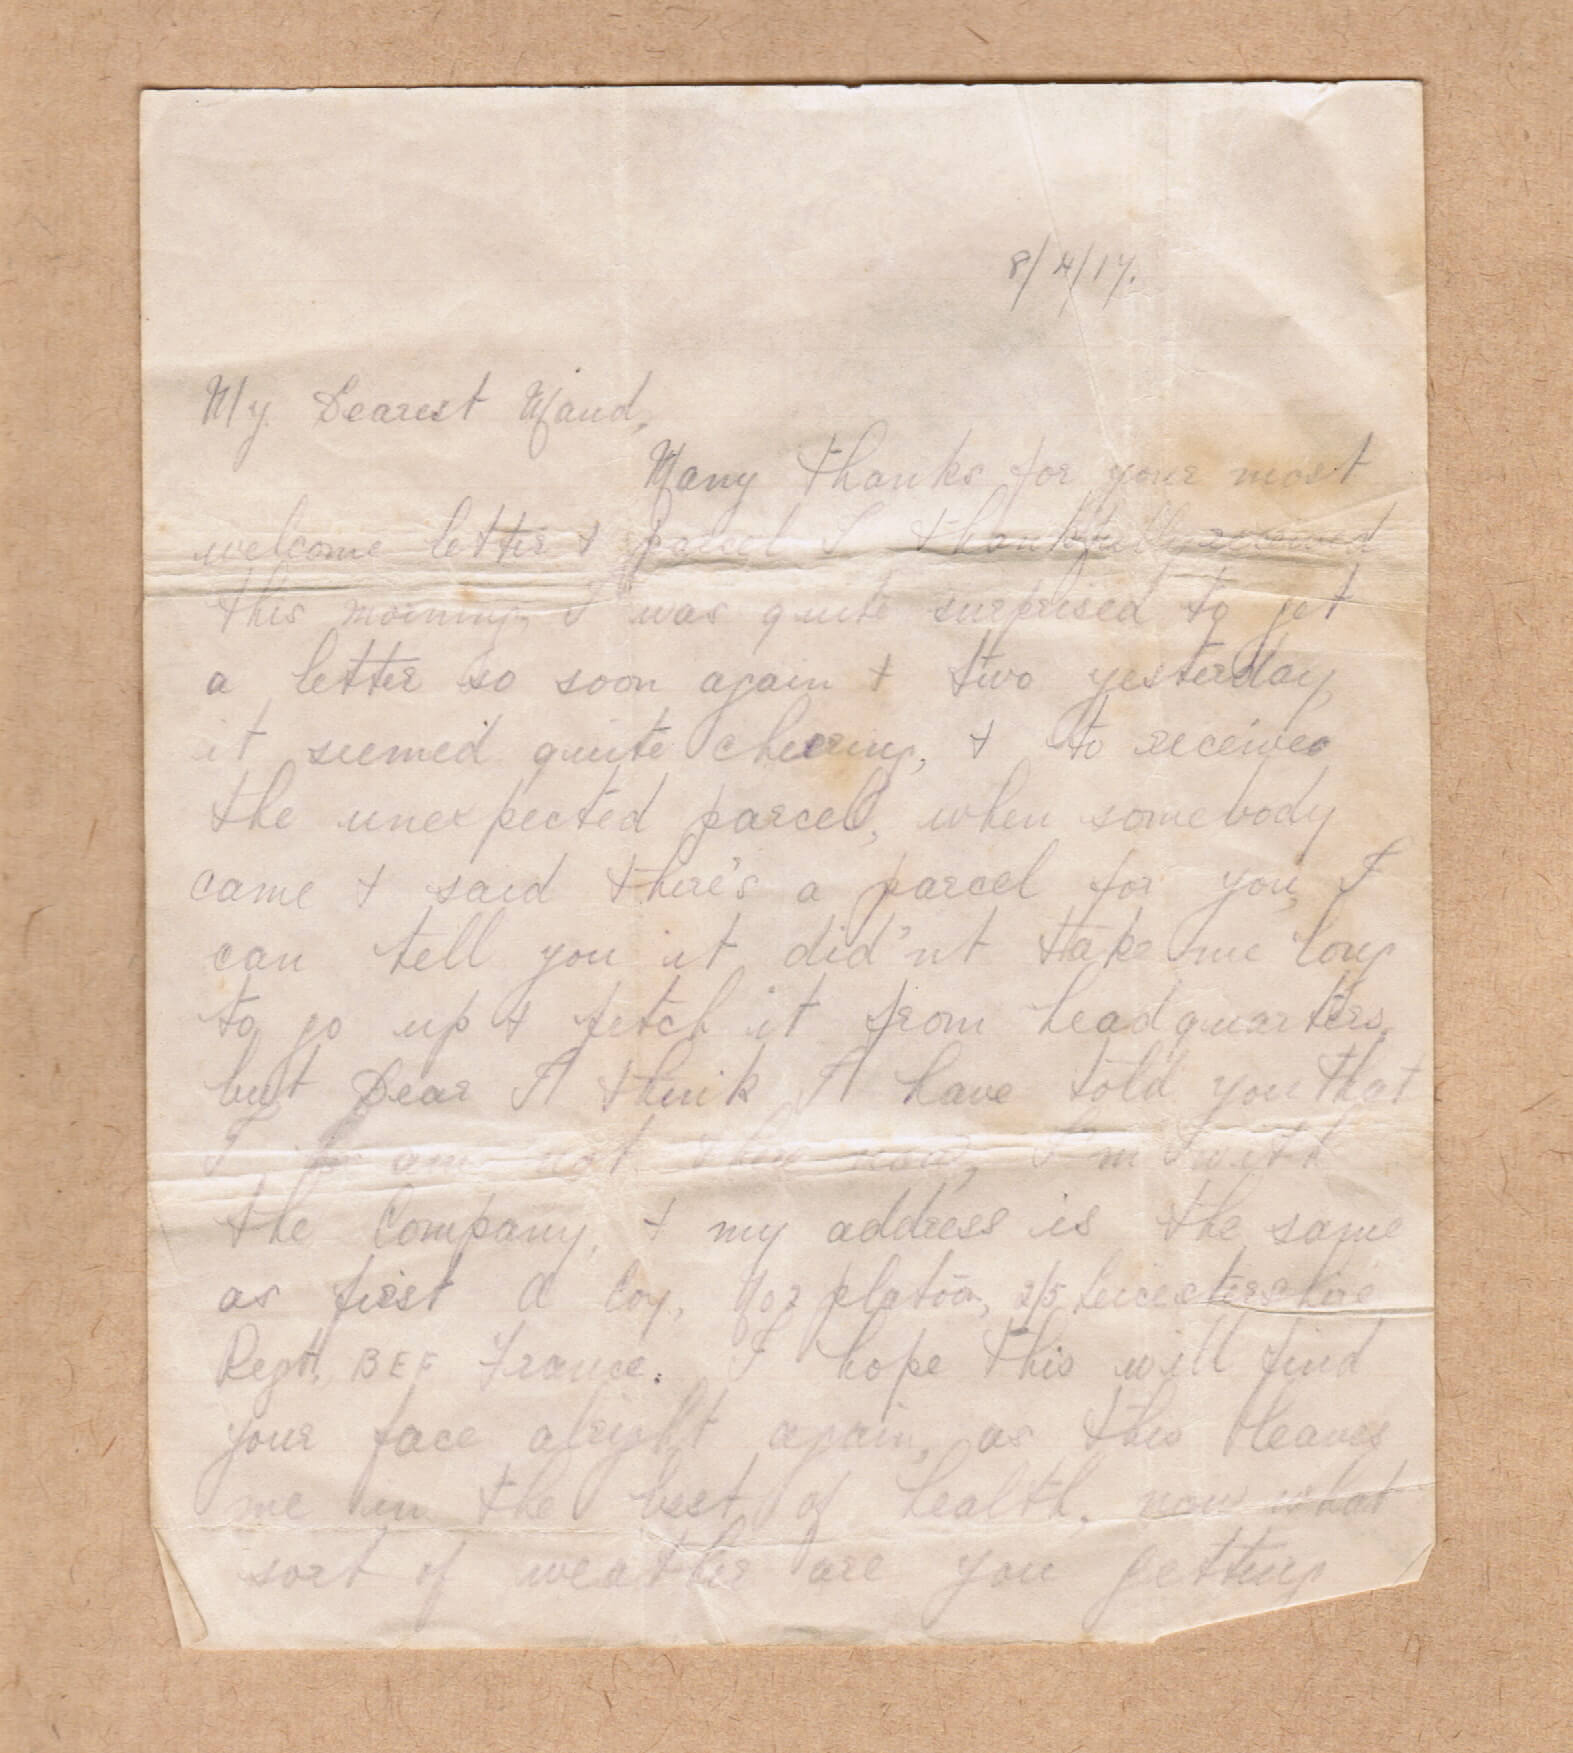 8/4/17.
My Dearest Maud,
Many thanks for your most
welcome letter & parcel I thankfully received
this morning, I was quite surprised to get
a letter so soon again & two yesterday,
it seemed quite cheering, & to receive
the unexpected parcel, when somebody
came & said there's a parcel for you, I
can tell you it did'nt take me long
to go up & fetch it from headquarters,
but Dear I think I have told you that
I am not there now, I'm with
the Company, & my address is the same
as first D Coy, No 2 platoon, 2/5 Leicestershire
Regt, BEF France. I hope this will find
your face alright again, as this leaves
me in the best of health, now what
sort of weather are you getting